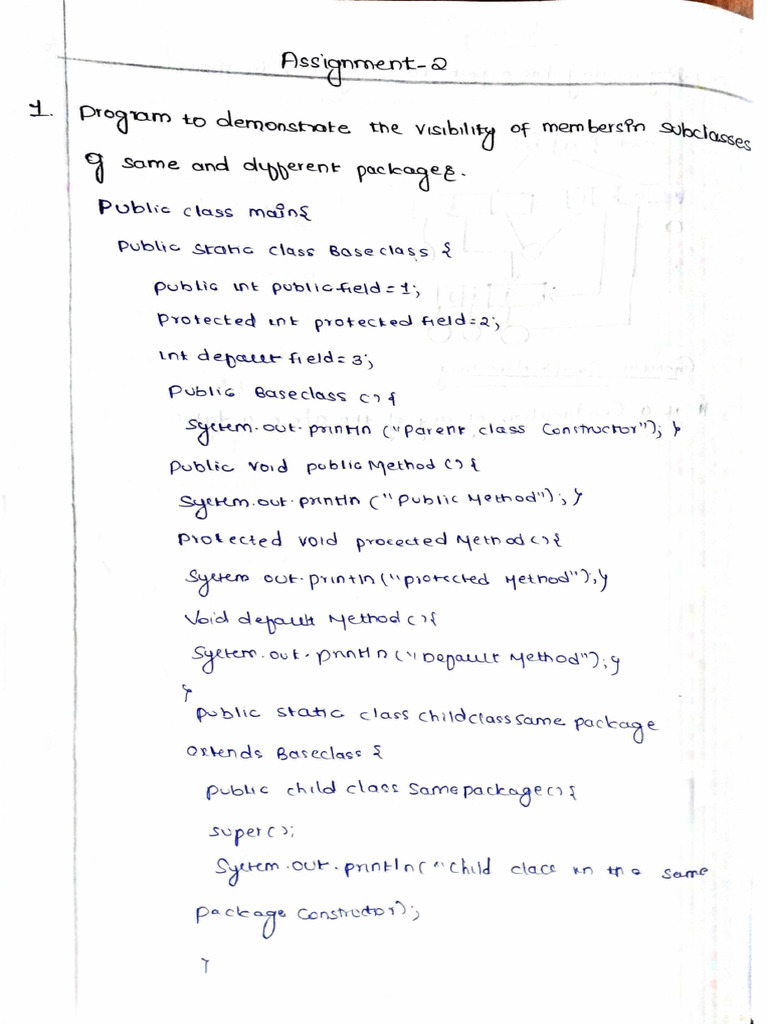 Assignment-2
1. Program to demonstrate the visibility of members in subclasses
of same and different packages.
Public class main{
Public static class Baseclass {
public int publicfield = 1;
Protected int protected field=2;
int default field = 3;
Public Baseclass () {
System.out.println ("Parent class Constructor"); }
Public void publicMethod () {
System.out.println ("Public Method"); }
Protected void protected Method () {
System out.println ("protected Method"); }
Void default Method () {
System.out.println ("Default Method"); }
}
public static class childclass same package
extends Baseclass {
public child class Same package () {
super ();
System.out.println ("child class in the same
package constructor);
}